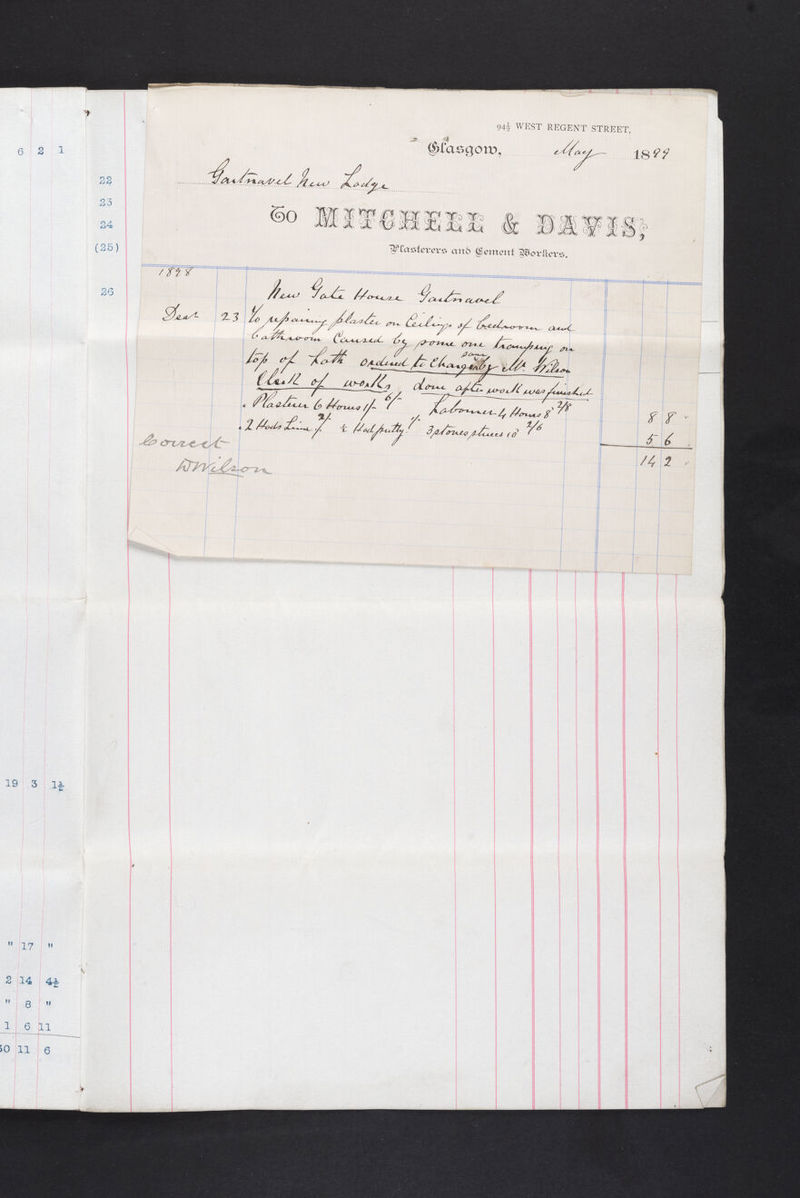 6 2 1
22
23
24
(25)
26
19 3 1½
" 17 "
2 14 4½
" 8 "
1 6 11
30 11 6
94½ WEST REGENT STREET,
Glasgow, May 1899
Gartnavel New Lodge
To MITCHELL & DAVIS,
Plasterers and Cement Workers.
1898
New Gate House Gartnavel
23 To repairing plaster on Ceilings of bedroom and
bathroom Caused by some one tramping on
top of Lath ordered to Charge same by Mr Wilson
Clerk of works, done after work was finished
Plasterer 6 Hours 1/- 6/- Labourer 4 Hours 8 2/8 8 8
2 Hods Lime 2/- ½ Hod putty 1/- 3 stones stucco 10 2/6 5 6
14 2
Correct
D Wilson